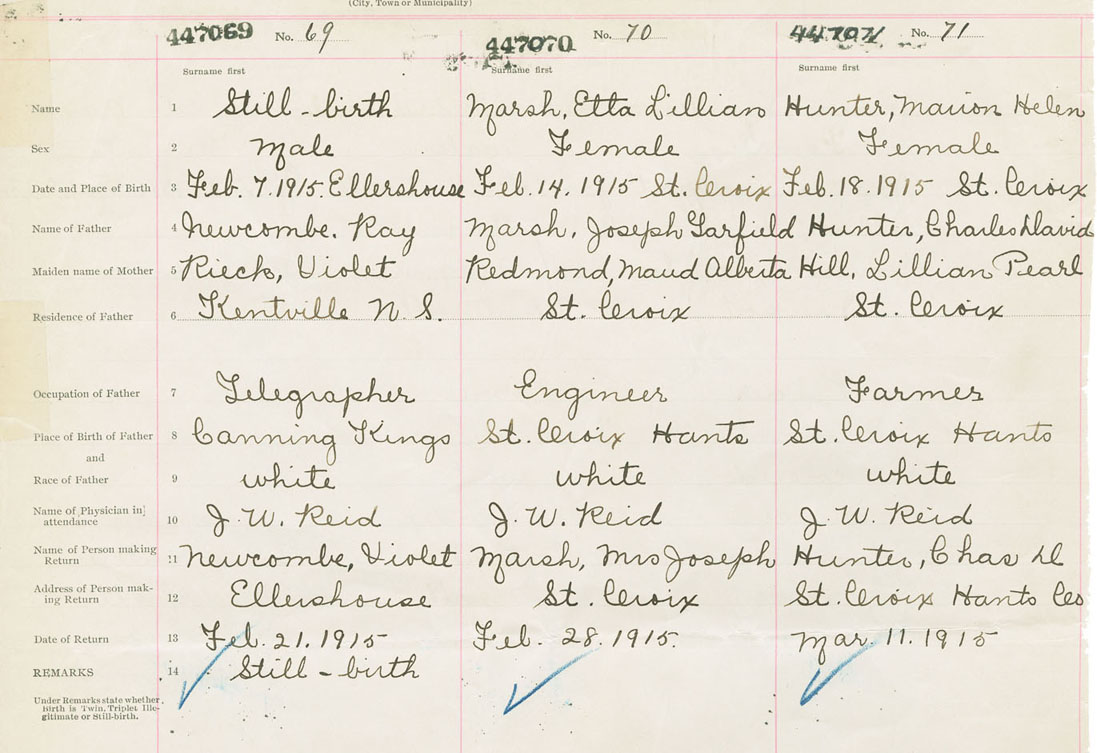 (City, Town or Municipality)
447069 No. 69 447070 No. 70 447071 No. 71
Surname first Surname first Surname first
Name 1 Still-birth Marsh, Etta Lillian Hunter, Marion Helen
Sex 2 Male Female Female
Date and Place of Birth 3 Feb. 7. 1915. Ellershouse Feb. 14. 1915 St. Croix Feb. 18. 1915 St. Croix
Name of Father 4 Newcombe. Ray Marsh, Joseph Garfield Hunter, Charles David
Maiden name of Mother 5 Rieck, Violet Redmond, Maud Alberta Hill, Lillian Pearl
Residence of Father 6 Kentville N. S. St. Croix St. Croix
Occupation of Father 7 Telegrapher Engineer Farmer
Place of Birth of Father 8 Canning Kings St. Croix Hants St. Croix Hants
and
Race of Father 9 white white white
Name of Physician in attendance 10 J. W. Reid J. W. Reid J. W. Reid
Name of Person making Return 11 Newcombe, Violet Marsh, Mrs Joseph Hunter, Chas D
Address of Person making Return 12 Ellershouse St. Croix St. Croix Hants Co
Date of Return 13 Feb. 21. 1915 Feb. 28. 1915. Mar. 11. 1915
REMARKS 14 Still-birth
Under Remarks state whether
Birth is Twin, Triplet Ille-
gitimate or Still-birth.